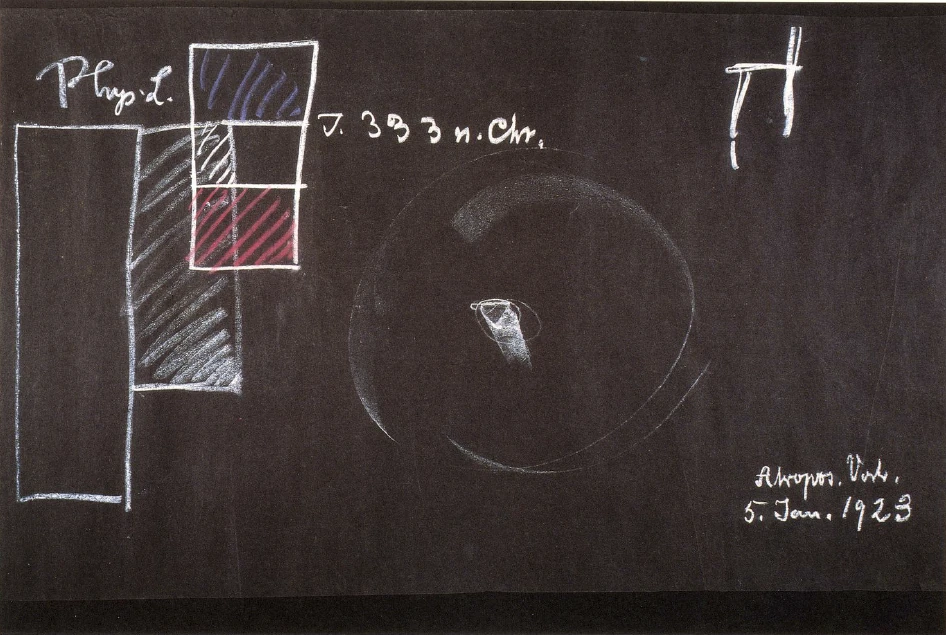 Phys. L.
J. 333 n. Chr.
Atropos. Vort.
5. Jan. 1923